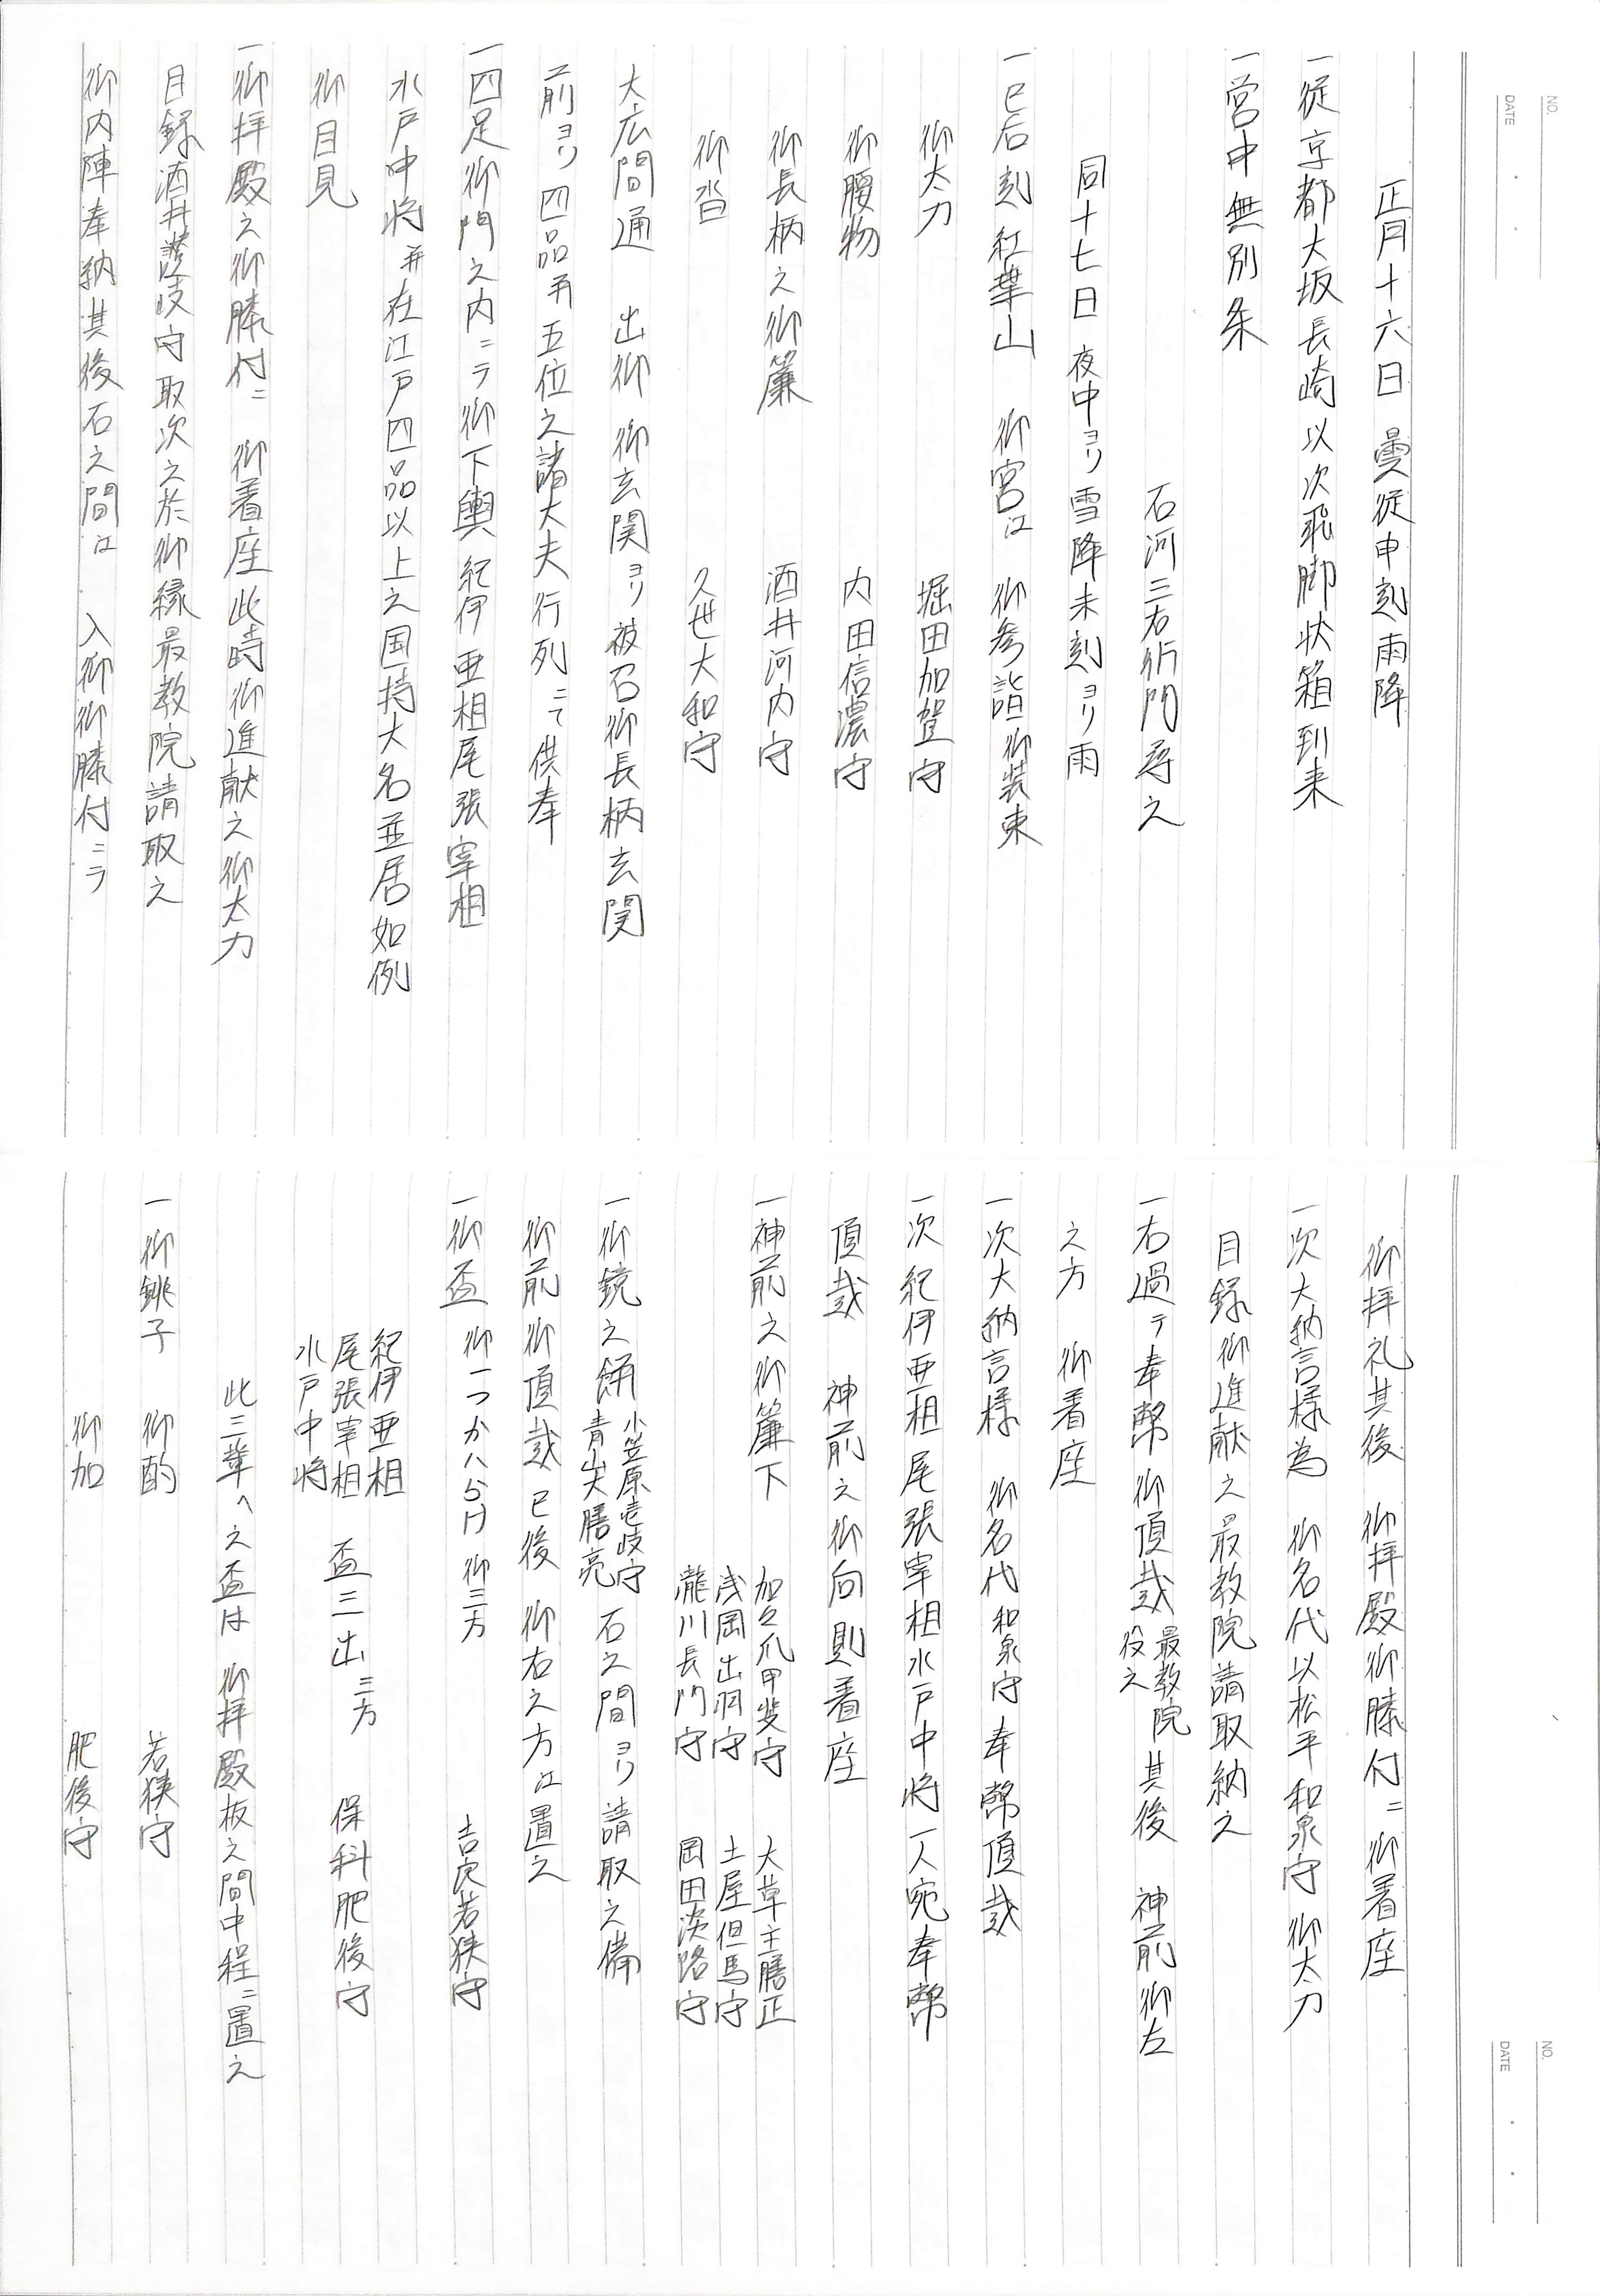 NO.
DATE
正月十六日 曇従申刻雨降
一従京都大坂長崎以次飛脚状箱到来
一宮中無別条
石河三右衛門尋之
同十七日 夜中ヨリ雪降未刻ヨリ雨
一巳后刻紅葉山 御宮江 御参詣御装束
御太刀 堀田加賀守
御腰物 内田信濃守
御長柄之御簾 酒井河内守
御沓 久世大和守
大広間通 出御 御玄関ヨリ被召御長柄玄関
前ヨリ四品并五位之諸大夫行列ニて供奉
一四足御門之内ニテ御下輿 紀伊亜相尾張宰相
水戸中将并在江戸四品以上之国持大名並居如例
御目見
一御拝殿之御膝付ニ 御着座此時御進献之御太刀
目録酒井讃岐守取次之於御縁最教院請取之
御内陣奉納其後石之間江 入御御膝付ニテ
御拝礼其後 御拝殿御膝付ニ御着座
一次大納言様為 御名代以松平和泉守 御太刀
目録御進献之最教院請取納之
一右過テ奉幣 御頂戴 最教院役之 其後 神前御左
之方 御着座
一次大納言様 御名代和泉守奉幣頂戴
一次紀伊亜相尾張宰相水戸中将一人宛奉幣
頂戴 神前之御向則着座
一神前之御簾下 加々爪甲斐守 大草主膳正
浅岡出羽守 土屋但馬守
瀧川長門守 岡田淡路守
一御鏡之餅 小笠原壱岐守 青山大膳亮 石之間ヨリ請取之備
御前御頂戴已後 御右之方江置之
一御盃 御一つかハらけ 御三方 吉良若狭守
紀伊亜相
尾張宰相 盃三出 三方 保科肥後守
水戸中将
此三輩へ之盃は 御拝殿板之間中程ニ置之
一御銚子 御酌 若狭守
御加 肥後守
NO.
DATE